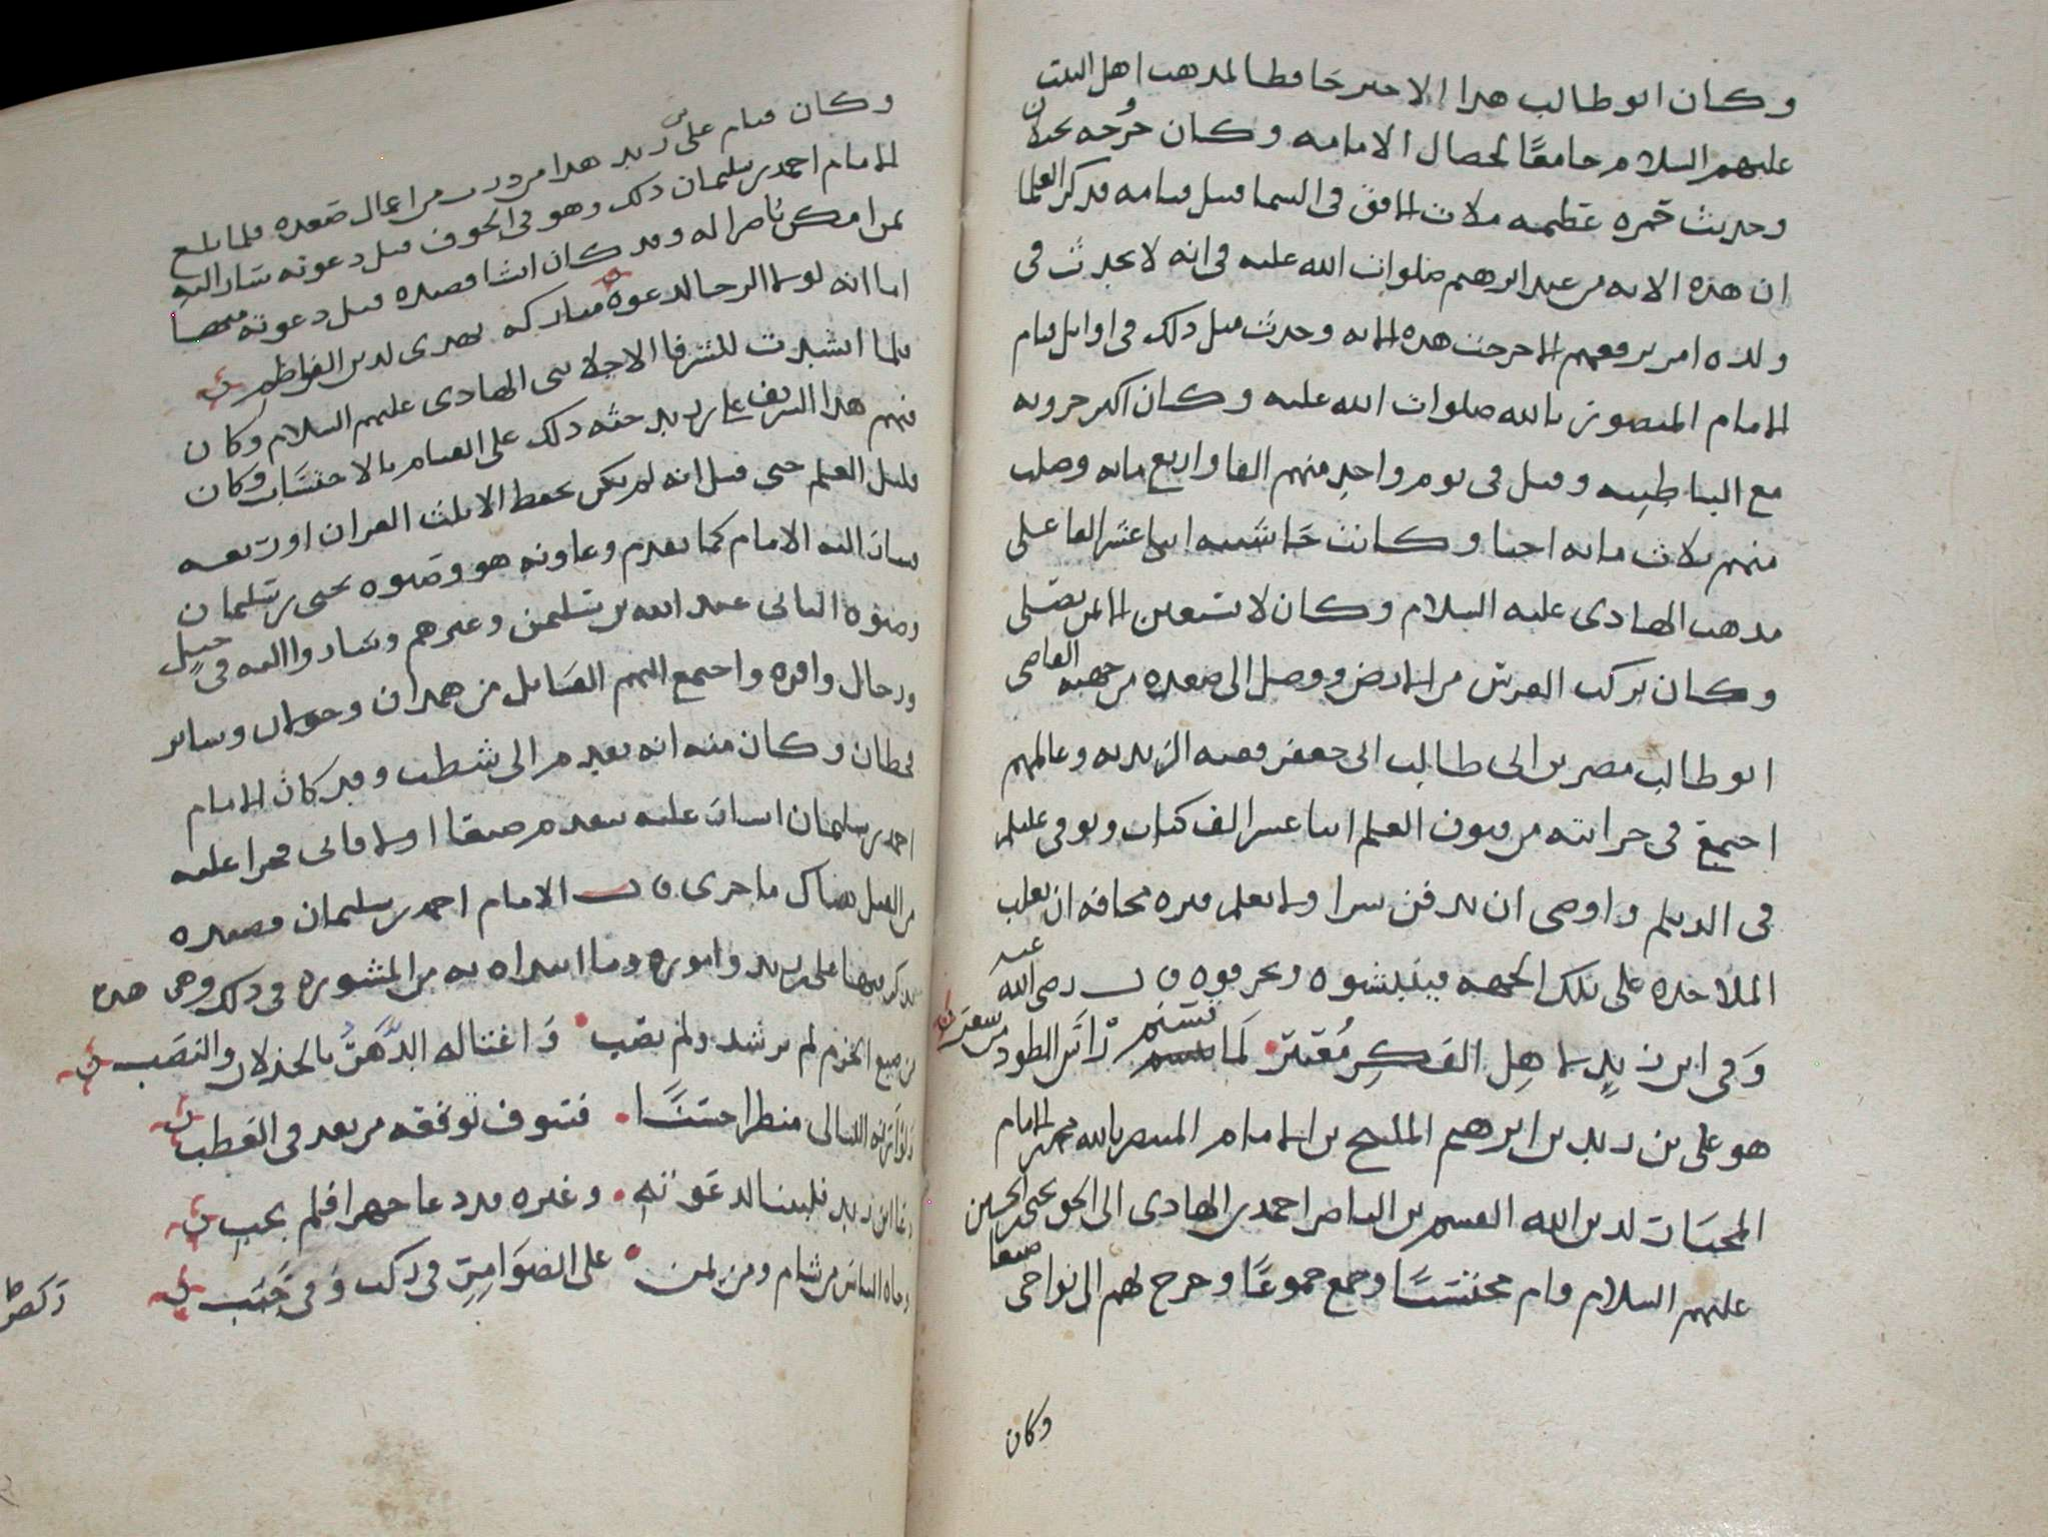 وكان ابو طالب هذا الاخير حافظا لمذهب اهل البيت
عليهم السلام جامعًا لخصال الامامه وكان خروجه بجيلان
وحدثت حمره عظيمه ملات الافق في السما قبل قيامه فذكر العلما
ان هذه الايه من عهد ابرهيم صلوات الله عليه في انه لا يحدث في
ولده امر يرفعهم الا خرجت هذه الايه وحدث مثل ذلك في اوايل قيام
الامام المنصور بالله صلوات الله عليه وكان اكثر حروبه
مع الباطنيه وقتل في يوم واحد منهم الفا واربع مايه وصلب
منهم ثلاث مايه احيا وكانت حاشيته اثنا عشر الفا على
مذهب الهادي عليه السلام وكان لا يستعين الا بمن يصلي
وكان يركب الفرس من الارض ووصل الى صعده من جهته القاضي
ابو طالب نصر بن ابي طالب ابي جعفر فقيه الزيديه وعالمهم
اجتمع في خزانته من فنون العلم اثنا عشر الف كتاب وتوفي عليلم
في الديلم واوصى ان يدفن سرا ولا يعلم قبره مخافه ان يغلب
الملاحده على تلك الجهه فينبشوه ويحرقوه قال رضي الله عنه
وَفي ابن زيدٍ لاهل الفكرِ مُعتبر لما تسنم رَاسَ الطود من سعر
هو علي بن زيد بن ابرهيم المليح بن الامام المنتصر بالله محمد بن الامام
المختار لدين الله القسم بن الناصر احمد بن الهادي الى الحق يحيى بن الحسين
عليهم السلام قام محتسبًا وجمع جموعًا وخرج بهم الى نواحي صنعا
وكان
وكان قيام علي بن زيد هذا من درب من اعمال صعده فلما بلغ
الامام احمد بن سليمان ذلك وهو في الجوف قبل دعوته سار اليه
بمن امكن ناصرا له وقد كان انشا قصيده قبل دعوته منها
اما انه لولا الرجا لدعوه مباركه تهدى لدين الفواطم
فلما انشدت للشرفا الاجلا بني الهادي عليهم السلام وكان
منهم هذا الشريف علي بن زيد حثه ذلك على القيام بالاحتساب وكان
قليل العلم حتى قيل انه لم يكن يحفظ الا ثلث القران او ربعه
فسار اليه الامام كما تقدم وعاونه هو وصنوه يحيى بن سليمان
وصنوه الثاني عبد الله بن سليمن وغيرهم وساروا اليه في خيل
ورجال وافره واجتمع اليهم القبايل من همدان وخولان وساير
قحطان وكان منه انه تقدم الى شظب وقد كان الامام
احمد بن سليمان اشار عليه بتقدم صنعا اولا فابى فجرا عليه
من القتل هناك ما جرى قال الامام احمد بن سليمان قصيده
يذكر فيها علي بن زيد واموره وما ابداه به من المشوره في ذلك وهي هذه
من ضيع الحزم لم يرشد ولم يصب وَاغتاله الدَّهرُ بالخذلان والنصَب
منظرا حسنًا فسوف توقفه من بعد في العطب
دعا ابن زيد فلبينا لدعوته وغيره قد دعا جهرا فلم يجب
وجاه الناس من شام ومن يمن على الضوَامِرِ في ركب وَفي خَبَب